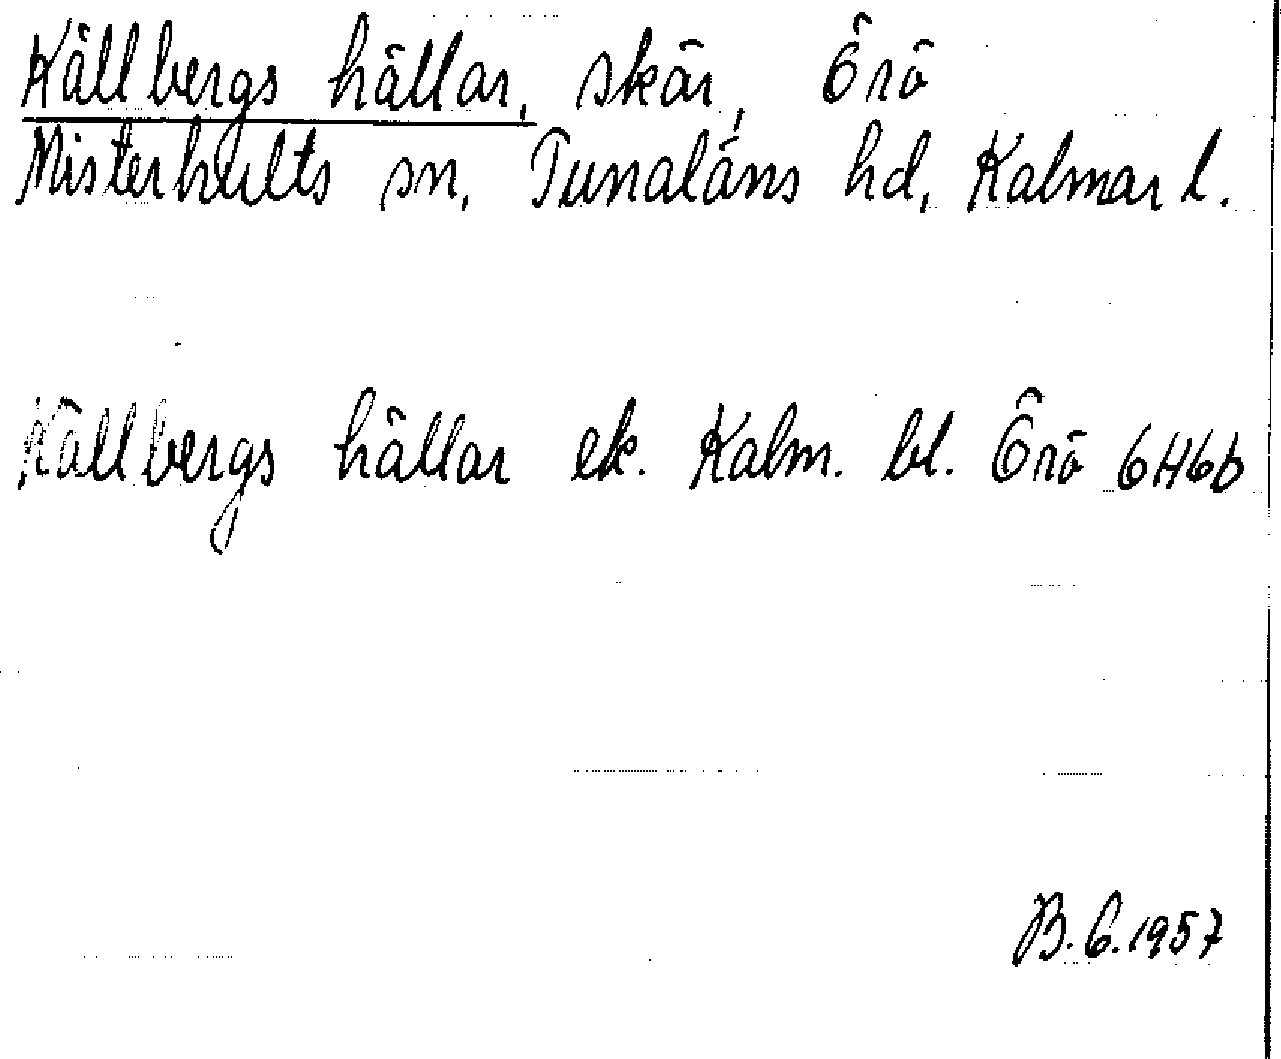 Källbergs hällar, skär, Örö
Misterhults sn, Tunaläns hd, Kalmar l.
Källbergs hällar ek. Kalm. bl. Örö 6H6b
B.G.1957